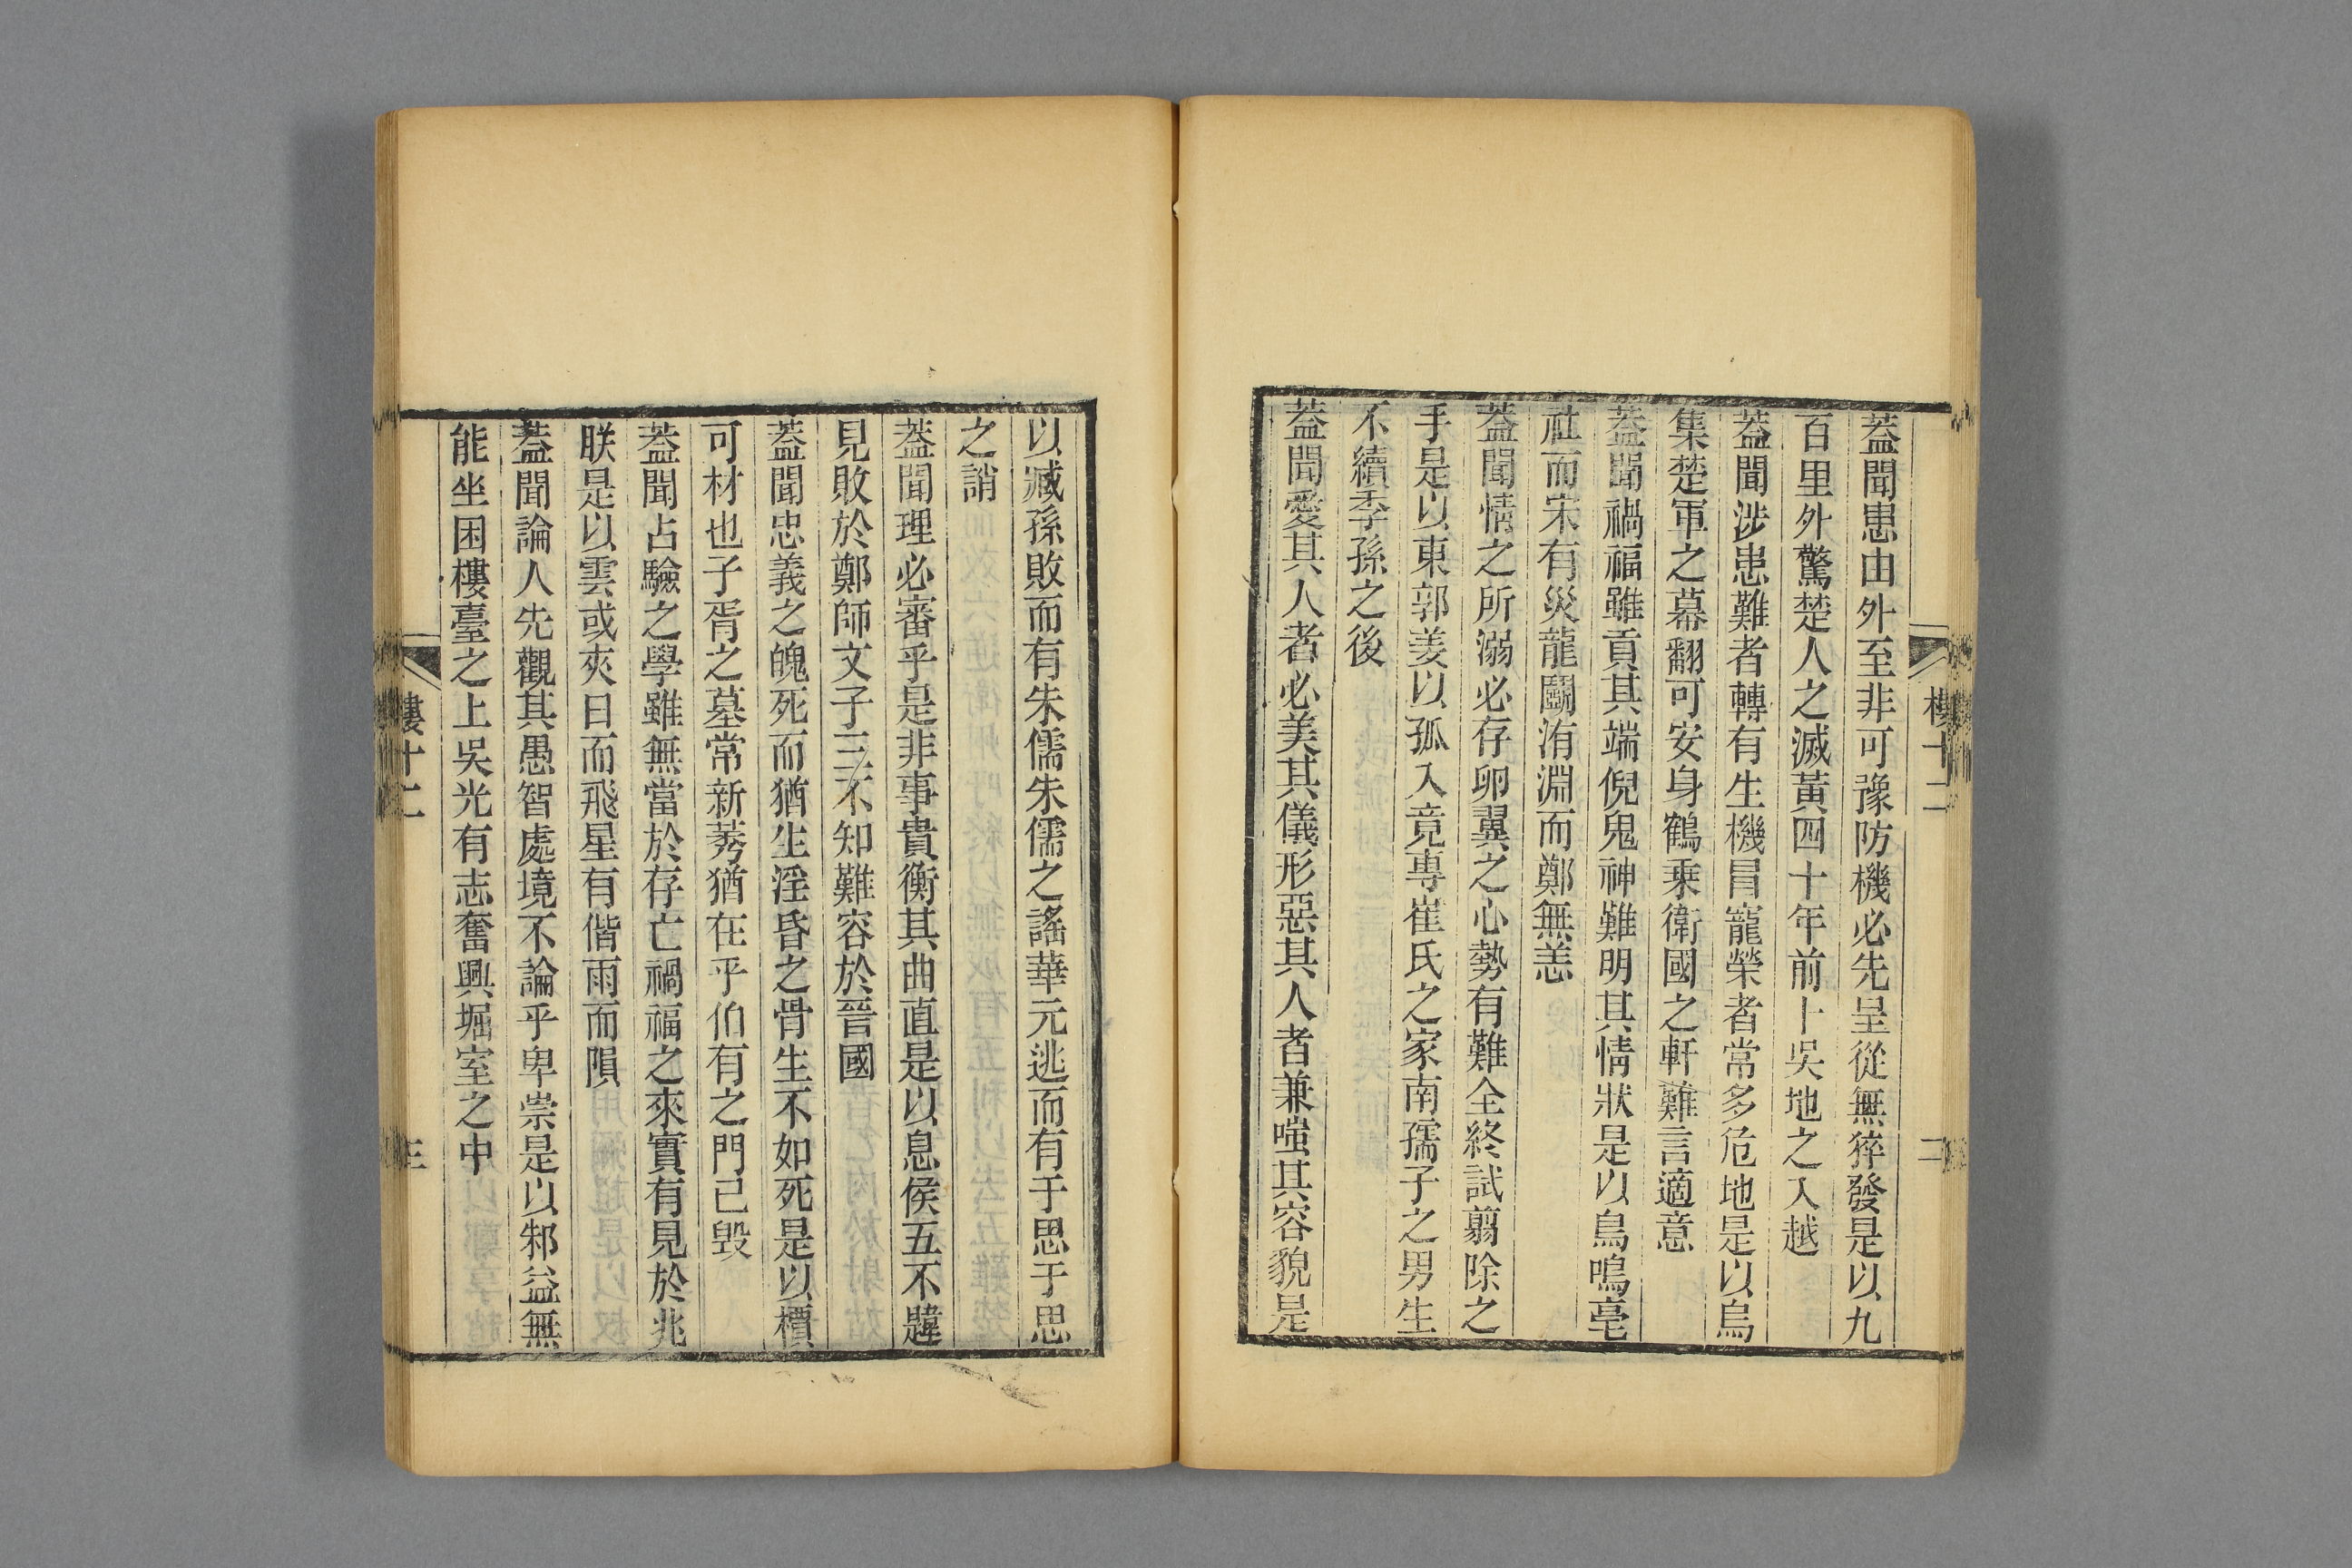 蓋聞患由外至非可豫防機必先呈從無猝發是以九
百里外驚楚人之滅黃四十年前卜吳地之入越
蓋聞涉患難者轉有生機冒寵榮者常多危地是以烏
集楚軍之幕翻可安身鶴乘衛國之軒難言適意
蓋聞禍福雖貢其端倪鬼神難明其情狀是以鳥鳴亳
社而宋有災龍鬭洧淵而鄭無恙
蓋聞情之所溺必存卵翼之心勢有難全終試翦除之
手是以東郭姜以孤入竟專崔氏之家南孺子之男生
不續季孫之後
蓋聞愛其人者必美其儀形惡其人者兼嗤其容貌是
樓十二
二
以臧孫敗而有朱儒朱儒之謠華元逃而有于思于思
之誚
蓋聞理必審乎是非事貴衡其曲直是以息侯五不韙
見敗於鄭師文子三不知難容於晉國
蓋聞忠義之魄死而猶生淫昏之骨生不如死是以檟
可材也子胥之墓常新莠猶在乎伯有之門已毀
蓋聞占驗之學雖無當於存亡禍福之來實有見於兆
朕是以雲或夾日而飛星有偕雨而隕
蓋聞論人先觀其愚智處境不論乎卑崇是以邾益無
能坐困樓臺之上吳光有志奮興堀室之中
樓十二
三